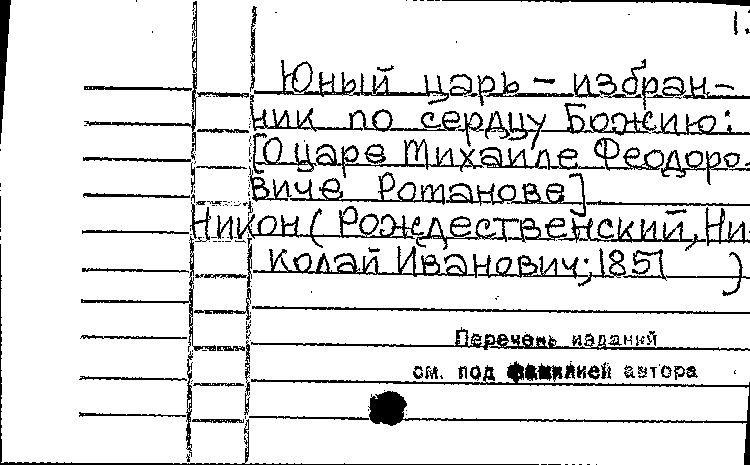 1.
Юный царь – избран-
ник по сердцу Божию:
[О царе Михаиле Феодоро-
виче Романове]
Никон (Рождественский, Ни-
колай Иванович; 1851 )
Перечень изданий
см. под фамилией автора